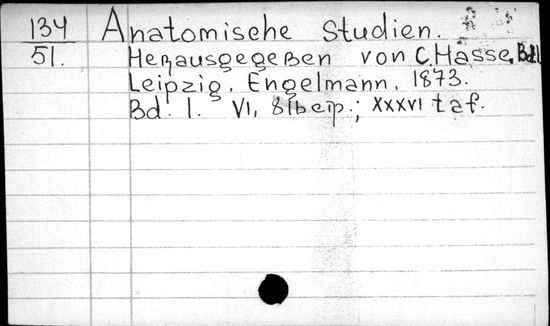 134
51.
Anatomische Studien.
Herausgegeben von C. Hasse. Bd. I
Leipzig. Engelmann. 1873.
Bd. 1. VI, 816 стр.; XXXVI taf.